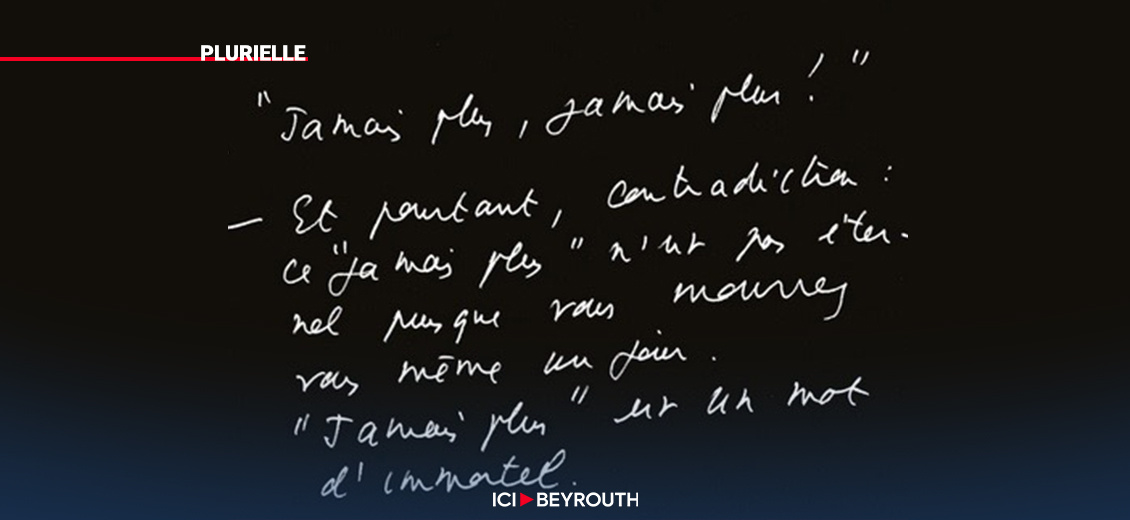 PLURIELLE
"Jamais plus, jamais plus!"
— Et pourtant, contradiction :
ce "jamais plus" n'est pas éter-
nel puisque vous mourrez
vous même un jour.
"Jamais plus" est un mot
d'immortel.
ICI BEYROUTH